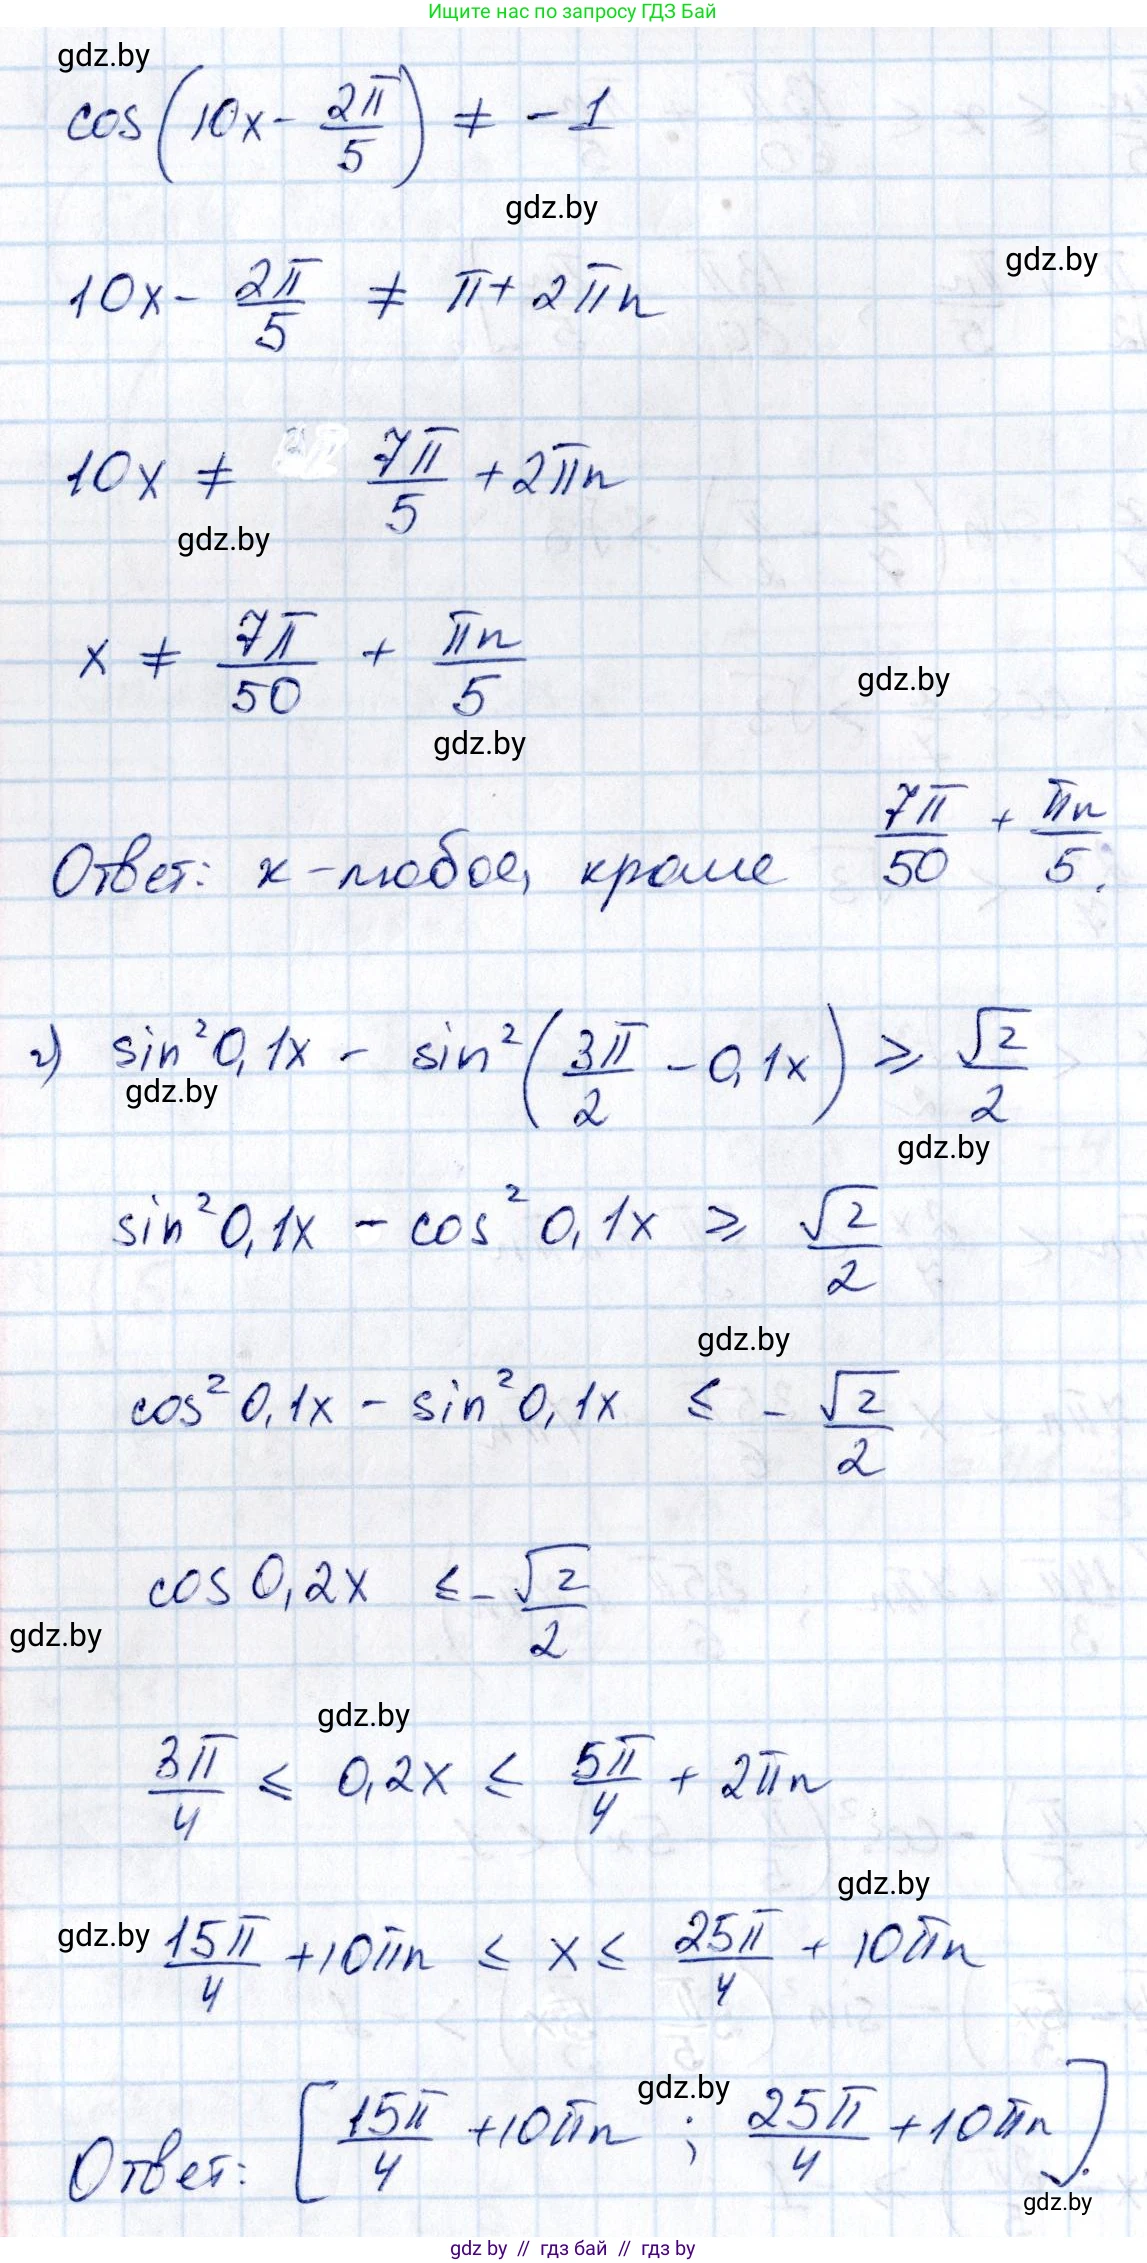 Ищите нас по запросу ГДЗ Бай
gdz.by
cos(10x - 2π/5) ≠ -1
gdz.by
gdz.by
10x - 2π/5 ≠ π + 2πn
10x ≠ 7π/5 + 2πn
gdz.by
x ≠ 7π/50 + πn/5
gdz.by
gdz.by
Ответ: x - любое, кроме 7π/50 + πn/5.
г) sin²0,1x - sin²(3π/2 - 0,1x) ⩾ √2/2
gdz.by
gdz.by
sin²0,1x - cos²0,1x ⩾ √2/2
gdz.by
cos²0,1x - sin²0,1x ≤ -√2/2
cos0,2x ≤ -√2/2
gdz.by
gdz.by
3π/4 ≤ 0,2x ≤ 5π/4 + 2πn
gdz.by
gdz.by
15π/4 + 10πn ≤ x ≤ 25π/4 + 10πn
gdz.by
Ответ: [15π/4 + 10πn ; 25π/4 + 10πn].
gdz.by
gdz by // гдз бай // гдз by